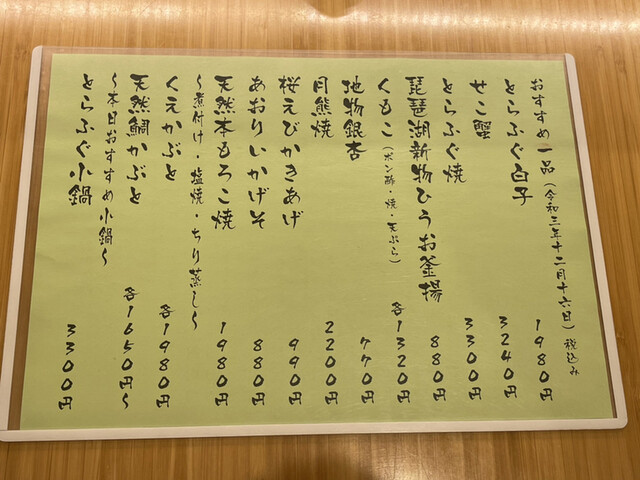 おすすめ一品(令和三年十二月十六日)税込み
とらふぐ白子 1980円
せこ蟹 3240円
とらふぐ焼 3300円
琵琶湖新物ひうお釜揚 880円
くもこ(ポン酢・焼・天ぷら) 各1320円
地物銀杏 770円
月熊焼 2200円
桜えびかきあげ 990円
あおりいかげそ 880円
天然本もろこ焼 1980円
～煮付け・塩焼・ちり蒸し～
くえかぶと 各1980円
天然鯛かぶと 各1650円～
～本日おすすめ小鍋～
とらふぐ小鍋 3300円